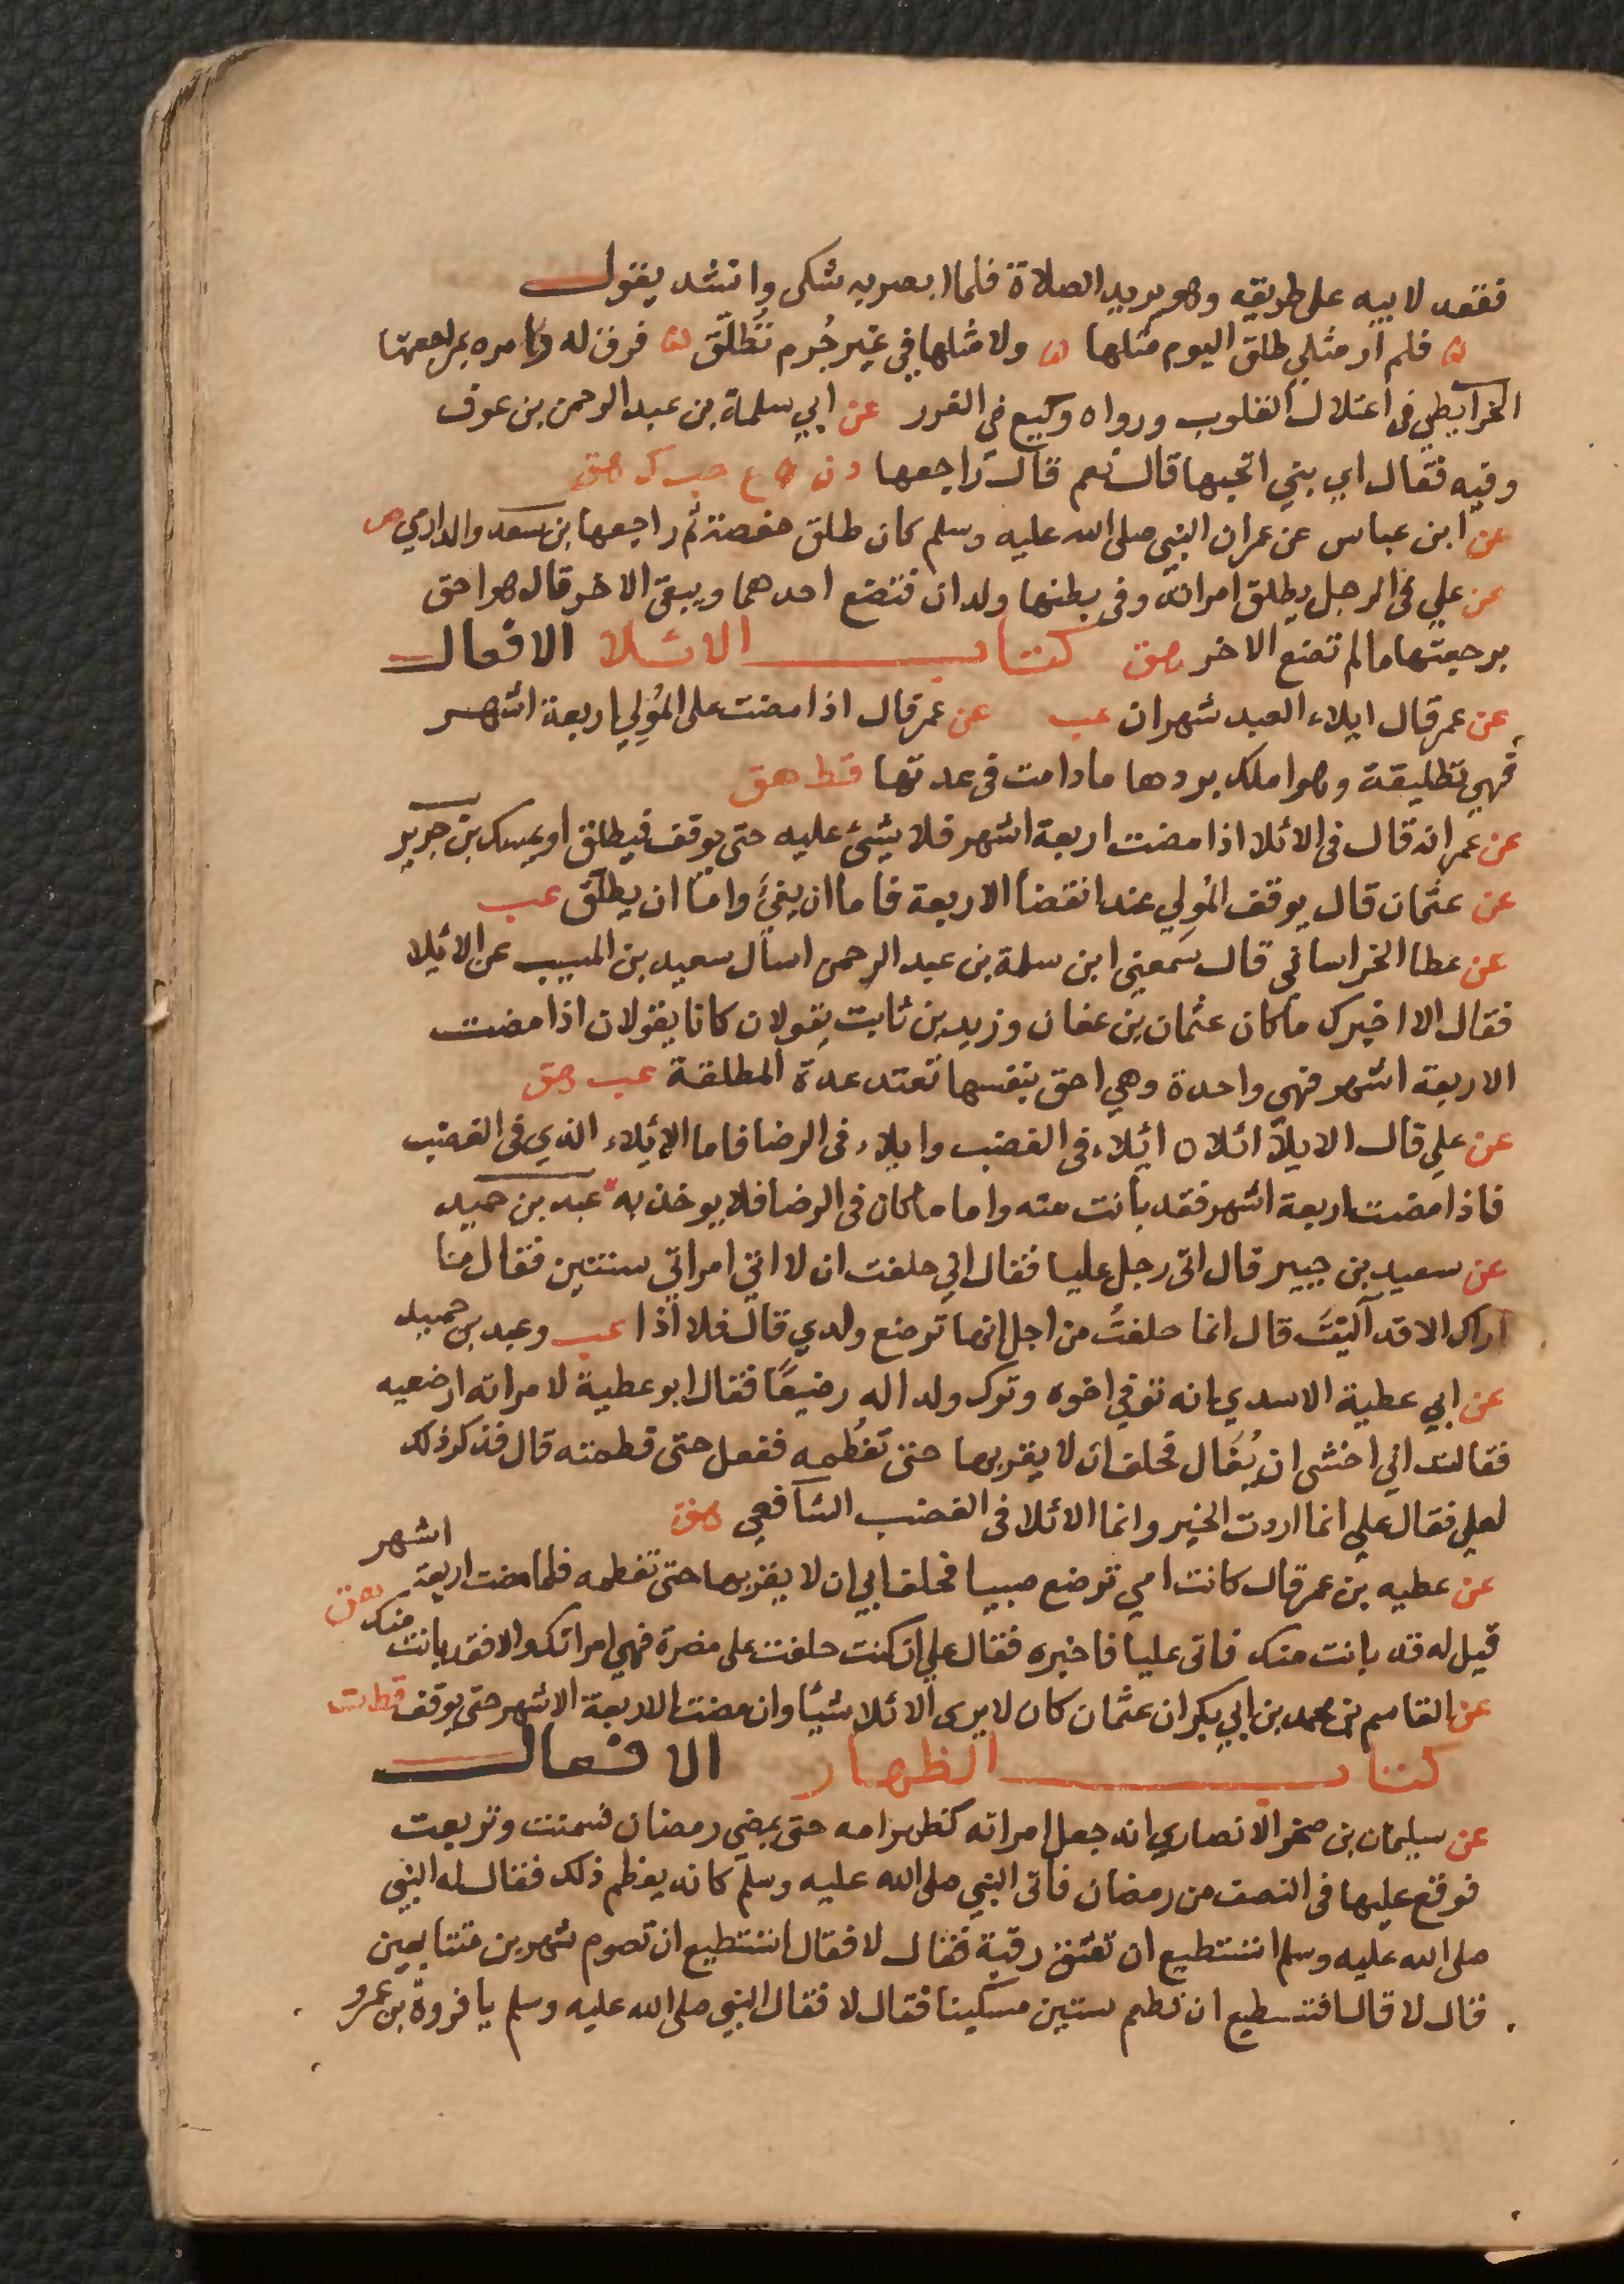 فقعد لابيه على طريقه وهو يريد الصلاة فلما ابصر به شكى وانشد يقول
فلم ار مثلي طلق اليوم مثلها ولا مثلها في غير جُرم تُطلّق فرق له وامره بمراجعتها
الخرايطي في اعتلال القلوب ورواه وكيع في الغرر عن ابي سلمة بن عبد الرحمن بن عوف
وفيه فقال اي بني اتحبها قال نعم قال راجعها د ن ه ع حب ك هق
عن ابن عباس عن عمر ان النبي صلى الله عليه وسلم كان طلق حفصة ثم راجعها بن سعد والدارمي ص
عن علي في الرجل يطلق امراته وفي بطنها ولدان فتضع احدهما ويبقى الاخر قال هو احق
برجعتها ما لم تضع الاخر هق كتاب الائلا الافعال
عن عمر قال ايلاء العبد شهران عب عن عمر قال اذا مضت على المُولي اربعة اشهر
فهي تطليقة وهو املك بردها ما دامت في عدتها قط هق
عن عمر انه قال في الائلا اذا مضت اربعة اشهر فلا شيئ عليه حتى يوقف فيطلق او يمسك بن جرير
عن عثمان قال يوقف المُولي عند انقضا الاربعة فاما ان يفيَ واما ان يطلّق عب
عن عطا الخراساني قال سمعني ابن سلمة بن عبد الرحمن اسال سعيد بن المسيب عن الائلا
فقال الا اخبرك ما كان عثمان بن عفان وزيد بن ثابت يقولان كانا يقولان اذا مضت
الاربعة اشهر فهي واحدة وهي احق بنفسها تعتد عدة المطلقة عب هق
عن علي قال الايلاَ ائلان ائلاء في الغضب وايلاء في الرضا فاما الإئيلاء الذي في الغضب
فاذا مضت اربعة اشهر فقد بانت منه واما ما كان في الرضا فلا يوخذ به عبد بن حميد
عن سعيد بن جبير قال اتى رجل عليا فقال اني حلفت ان لا اتي امراتي سنتين فقال ما
اراك الا قد آليتَ قال انما حلفتُ من اجل انها ترضع ولدي قال فلا اذا عب وعبد بن حميد
عن ابي عطية الاسدي انه توفي اخوه وترك ولدا له رضيعًا فقال ابو عطية لامراته ارضعيه
فقالت اني اخشى ان يُغَال فحلف ان لا يقربها حتى تفطمه ففعل حتى فطمته قال فذكر ذلك
لعلي فقال علي انما اردت الخير وانما الائلا في الغضب الشافعي هق
عن عطيه بن عمر قال كانت امي ترضع صبيا فحلف ابي ان لا يقربها حتى تفطمه فلما مضت اربعة اشهر
قيل له قد بانت منك فاتى عليا فاخبره فقال علي ان كنت حلفت على مضرة فهي امراتك والا فقد بانت منك هق
عن القاسم بن محمد بن ابي بكر ان عثمان كان لا يرى الائلا شيئا وان مضت الاربعة الاشهر حتى يوقف قط ت
كتاب الظهار الافعال
عن سليمان بن صخر الانصاري انه جعل امراته كظهر امه حتى يمضي رمضان فسمنت وتربعت
فوقع عليها في النصف من رمضان فاتى النبي صلى الله عليه وسلم كانه يعظم ذلك فقال له النبي
صلى الله عليه وسلم اتستطيع ان تعتق رقبة فقال لا فقال اتستطيع ان تصوم شهرين متتابعين
قال لا قال افتستطيع ان تطعم ستين مسكينا فقال لا فقال النبي صلى الله عليه وسلم يا فروة بن عمرو